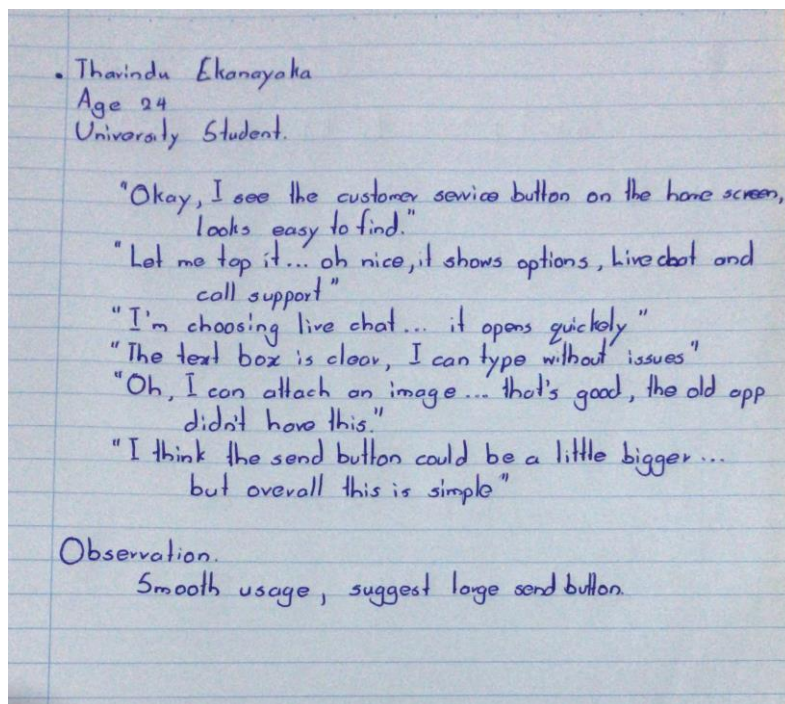 • Tharindu Ekanayaka
Age 24
University Student.
"Okay, I see the customer service button on the home screen,
looks easy to find."
"Let me tap it... oh nice, it shows options, Live chat and
call support"
"I'm choosing live chat... it opens quickely"
"The text box is clear, I can type without issues"
"Oh, I can attach an image... that's good, the old app
didn't have this."
"I think the send button could be a little bigger...
but overall this is simple"
Observation.
Smooth usage, suggest large send button.